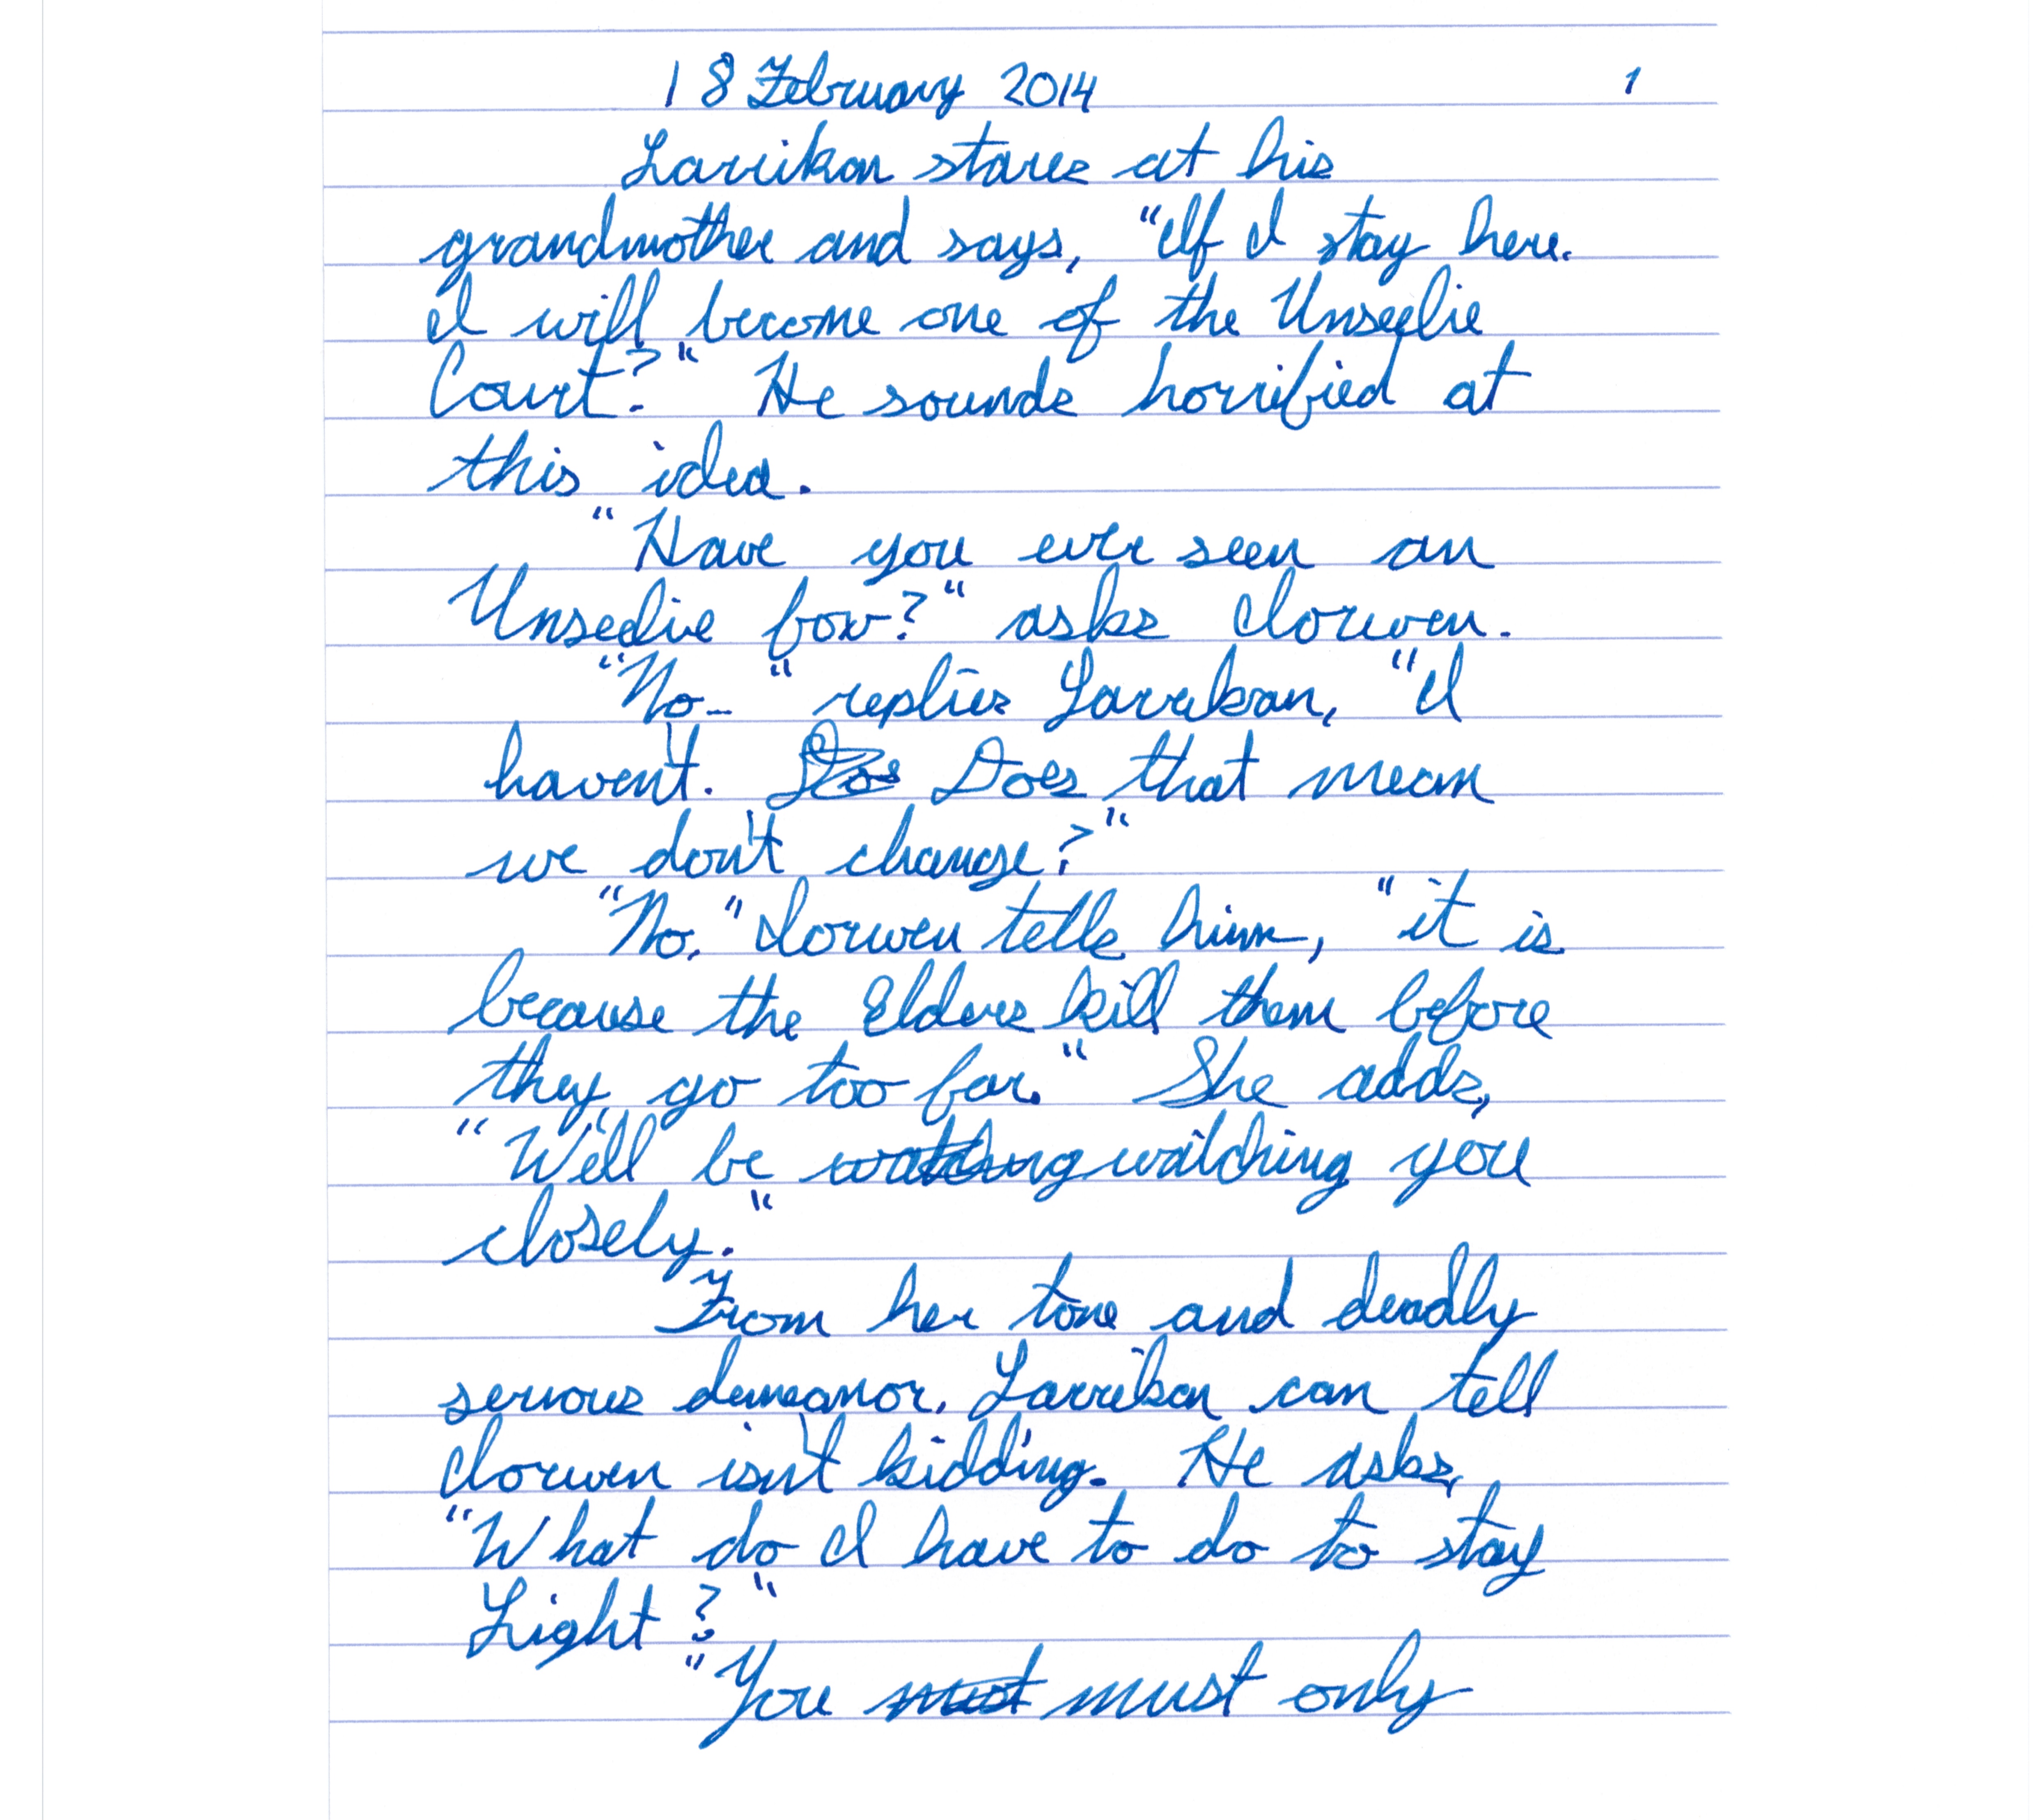 18 February 2014 1
Larrikan stares at his
grandmother and says, "If I stay here.
I will become one of the Unseelie
Court?" He sounds horrified at
this idea.
"Have you ever seen an
Unseelie fox?" asks Idorwen.
"No–" replies Larrakan, "I
haven't. Doe Does that mean
we don't change?"
"No," Idorwen tells him, "it is
because the Elders kill them before
they go too far." She adds,
"We'll be watching watching you
closely."
From her tone and deadly
serious demeanor, Larrikan can tell
Idorwen isn't kidding. He asks,
"What do I have to do to stay
Light?"
"You must must only